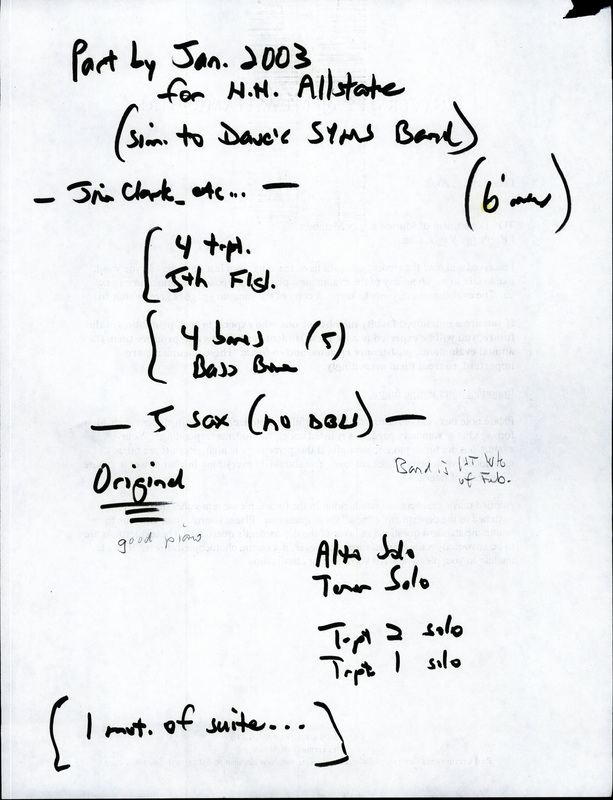 Part by Jan. 2003
for N.H. Allstate
(sim. to Dave's SYMS Band)
— Jim Clark_ etc... —
(6 min)
4 trpt.
5th Flg.
4 bones (5)
Bass Bone
— 5 sax (no DBLS) —
Band is 1ST wk
of Feb.
Original
good piano
Alto Solo
Tenor Solo
Trpt 2 solo
Trpt 1 solo
[1 mvt. of suite...]